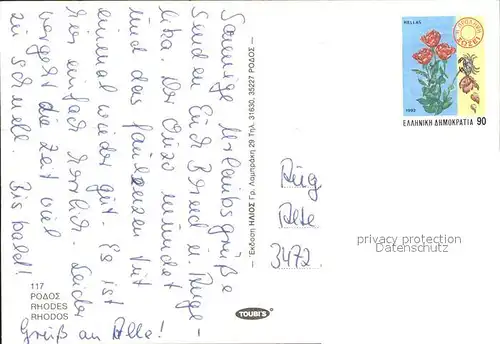 Sonnige Urlaubsgrüße
senden Euch Bernd u. Ange-
lika. Der Ouzo mundet
und das faulenzen tut
einmal wieder gut. Es ist
hier einfach herrlich. Leider
vergeht die Zeit viel
zu schnell. Bis bald!
Gruß an Alle!
— Έκδοση ΗΛΙΟΣ Γρ. Λαμπράκη 29 Τηλ. 31630, 35227 ΡΟΔΟΣ —
HELLAS
1992
ΕΛΛΗΝΙΚΗ ΔΗΜΟΚΡΑΤΙΑ 90
Alte
3472
privacy protection
Datenschutz
117
ΡΟΔΟΣ
RHODES
RHODOS
TOUBI'S